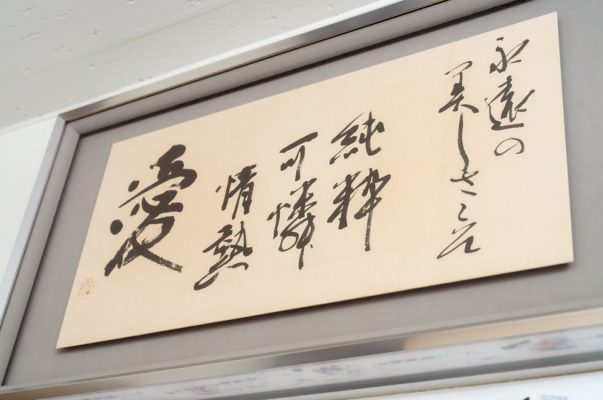 永遠の
美しさこそ
純粋
可憐
情熱
愛